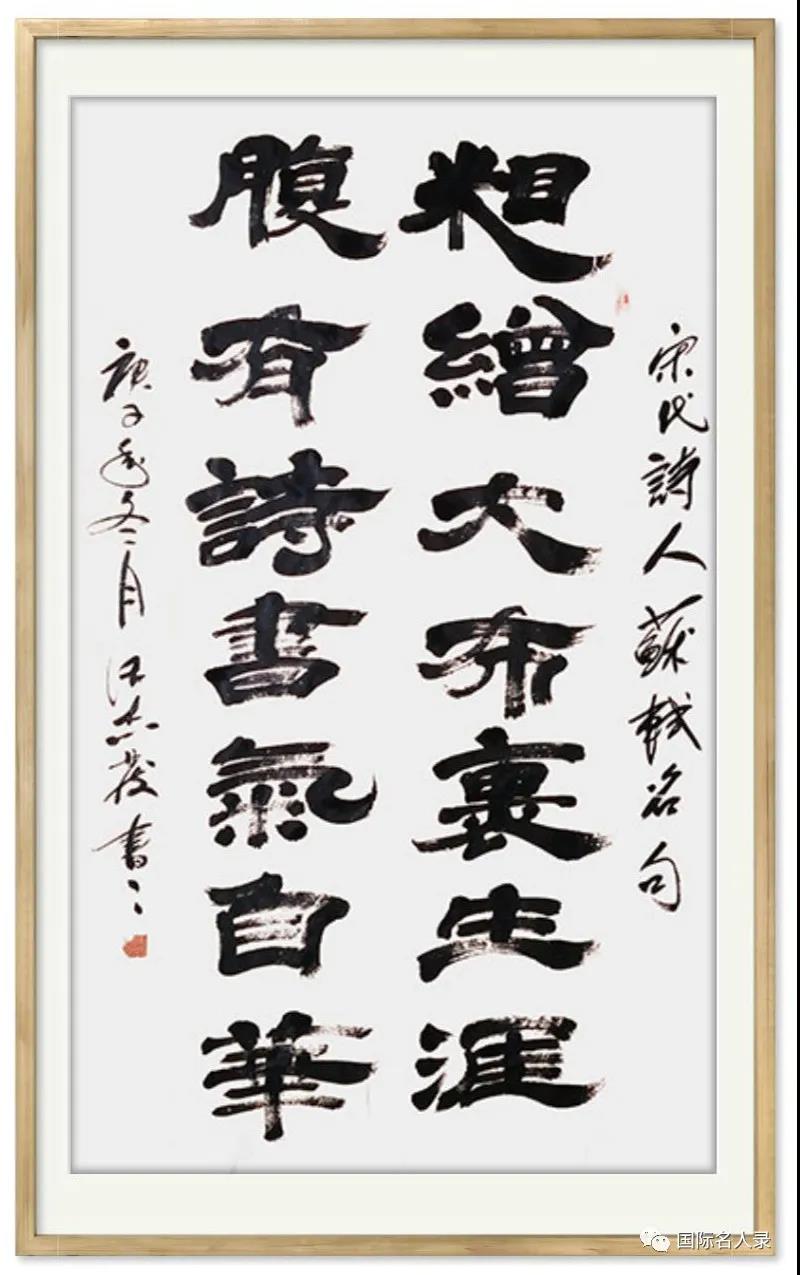 宋代詩人蘇軾名句
粗繒大布裹生涯
腹有詩書氣自華
庚子年冬月汪書
国际名人录